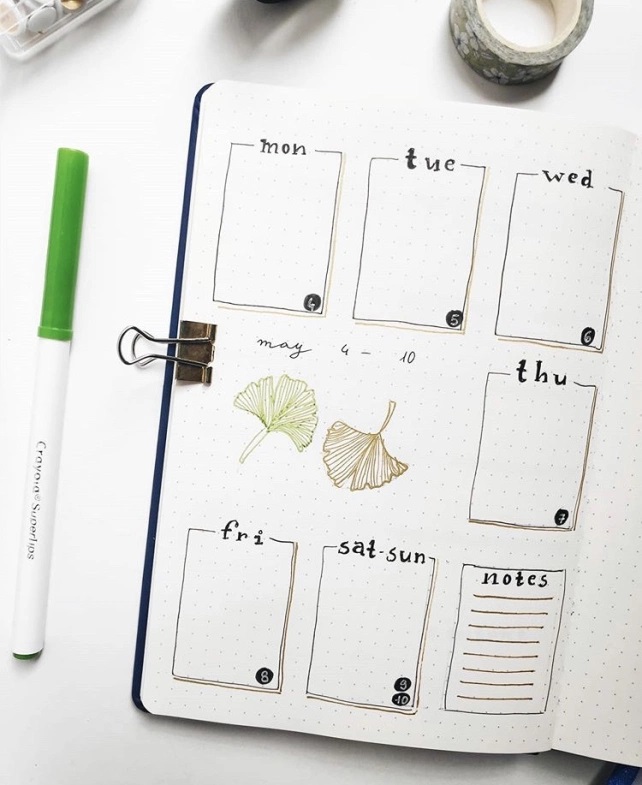 mon
tue
wed
4
5
6
may 4 - 10
thu
7
fri
sat-sun
notes
8
9
10
Crayola Supertips